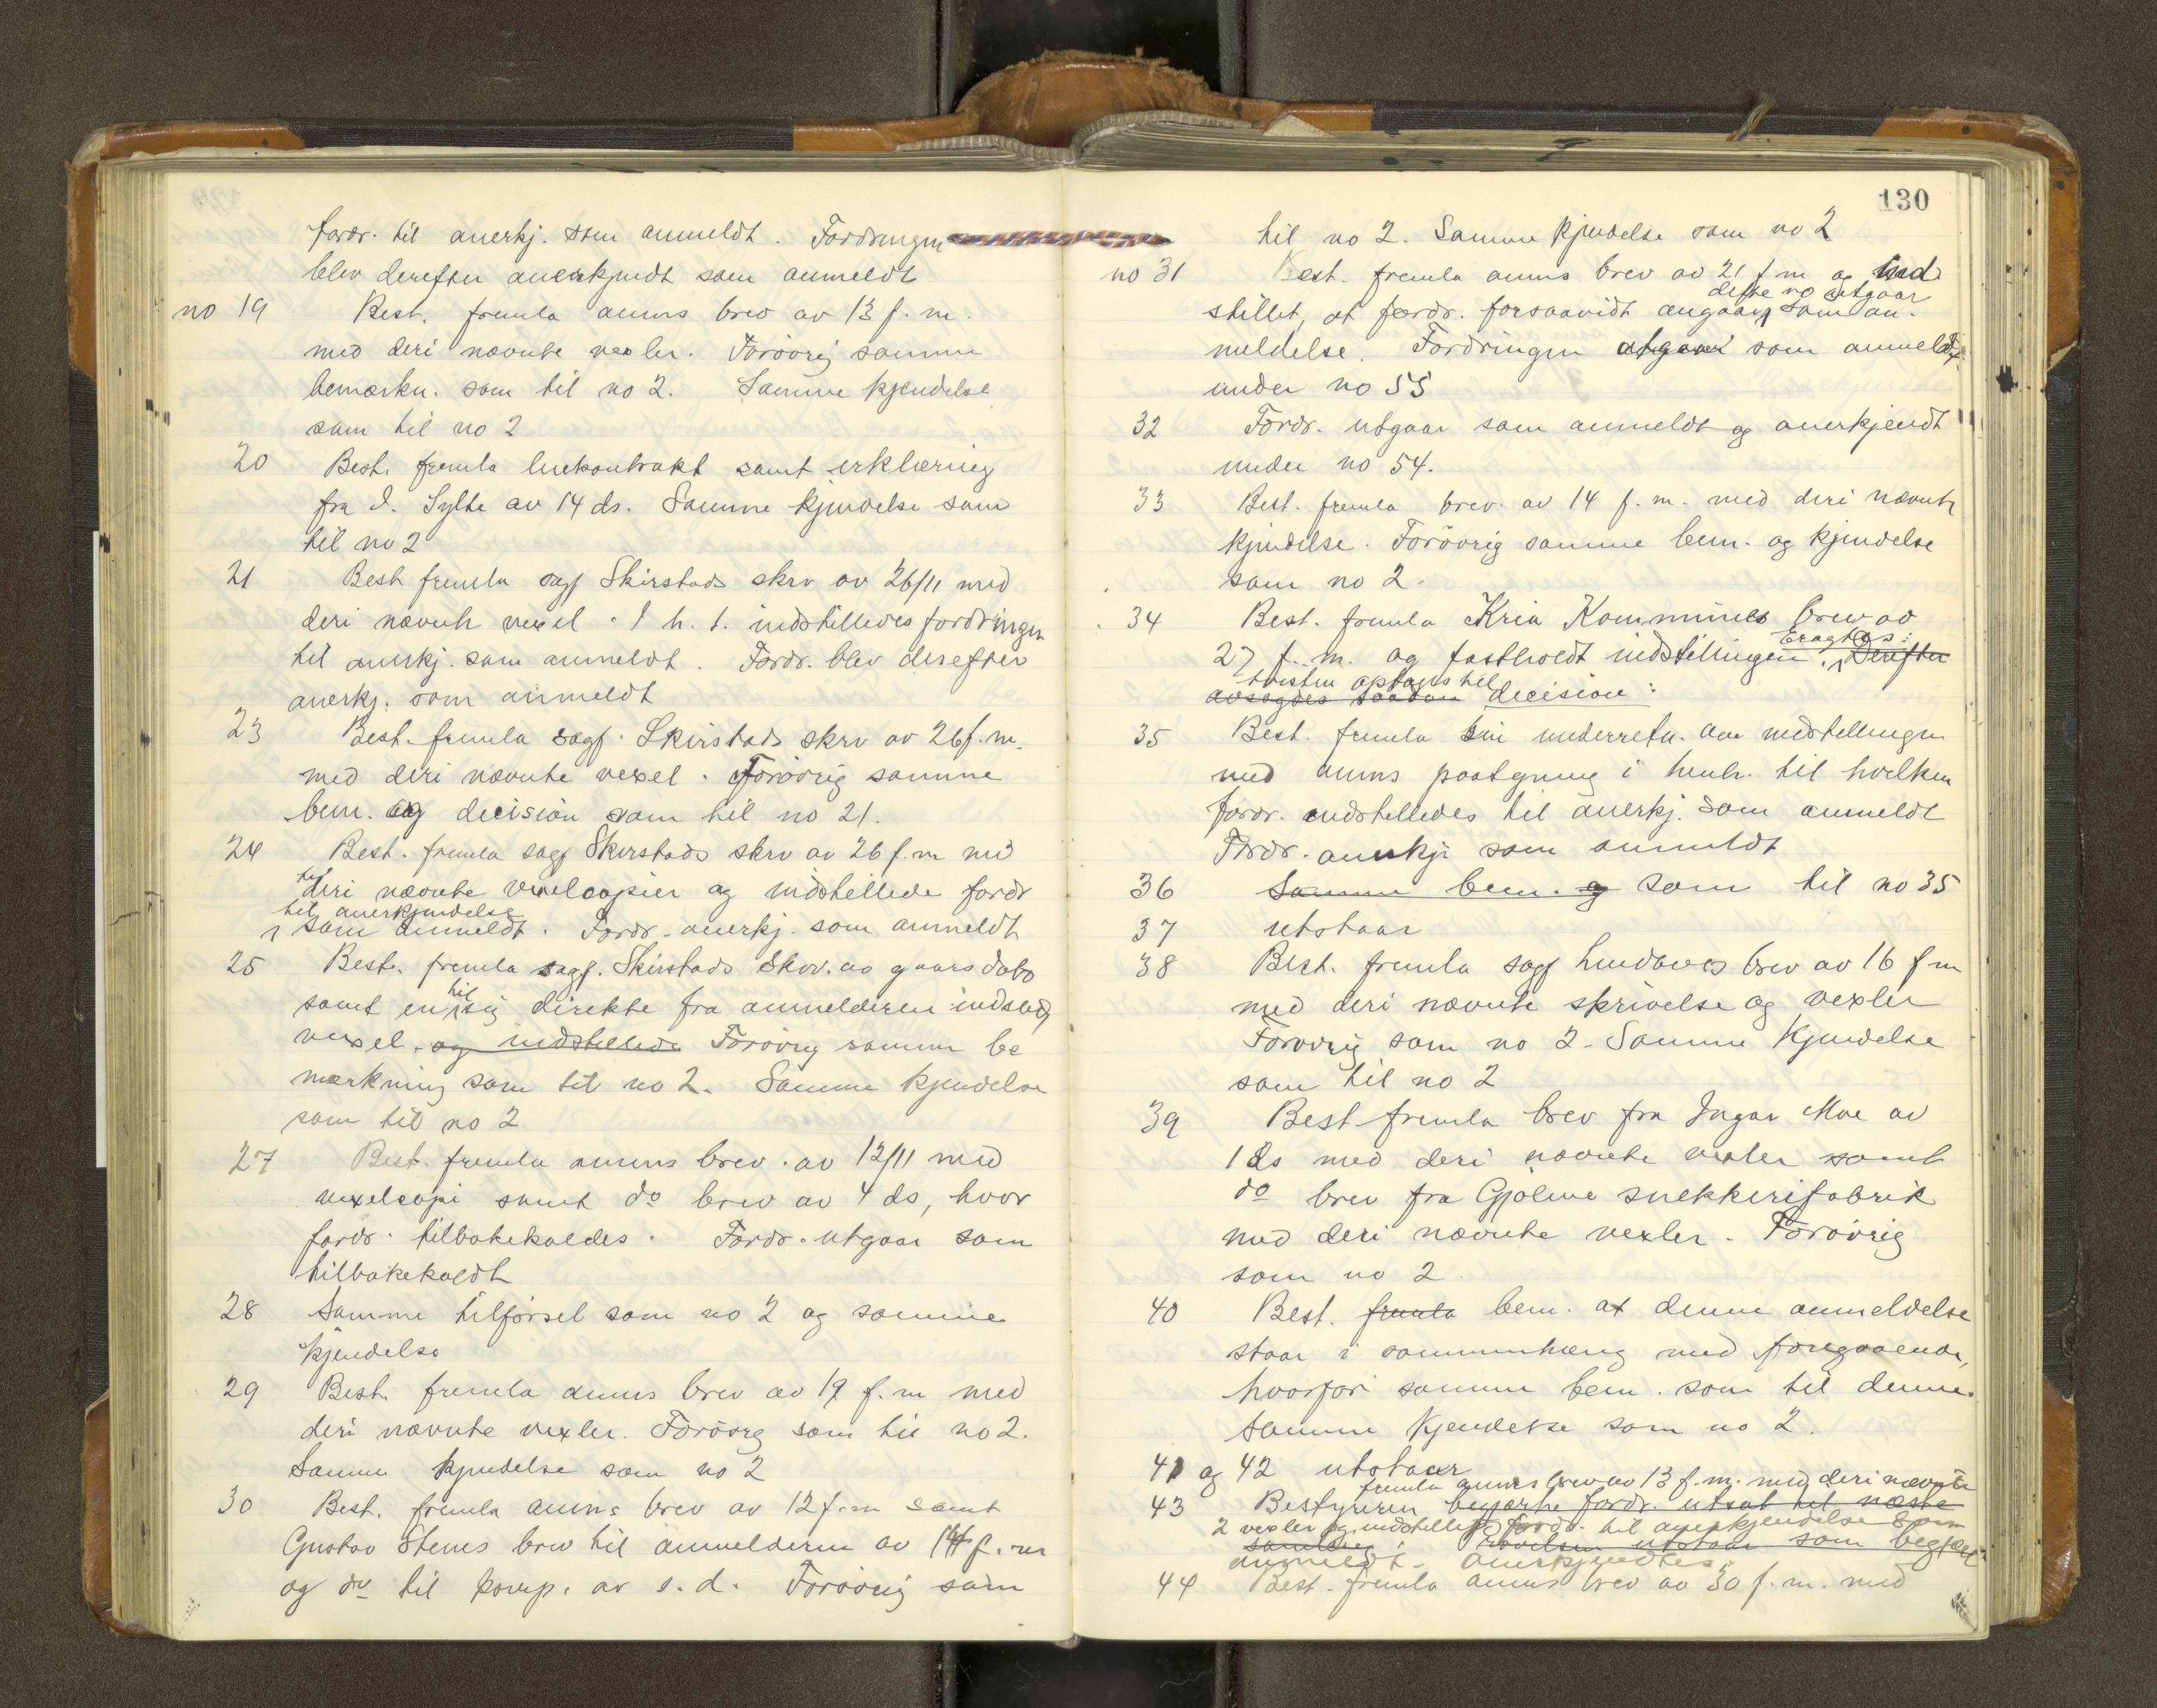 fordr. til anerkj. som anmeldt. Fordringen
blev derefter anerkjendt som anmeldt
no 19 Best. fremla anms brev av 13 f. m.
med deri nævnte vexler. Forøvrig samme
bemærkn. som til no 2. Samme kjendelse
som til no 2
20 Best. fremla leiekontrakt samt erklæring
fra I. Sylte av 14 ds. Samme kjendelse som
til no 2
21 Best fremla sagf Skirstads skrv av 26/11 med
deri nævnte vexel. I h. t. indstilledes fordringen
til anerkj. som anmeldt. Fordr. blev derefter
anerkj. som anmeldt
23 Best. fremla sagf. Skirstads skrv av 26 f. m.
med deri nævnte vexel. Forøvrig samme
bem. og decision som til no 21.
24 Best. fremla sagf Skirstads skrv av 26 f. m med
deri nævnte vexelcopier og indstillede fordr
til anerkjendelse
som anmeldt. Fordr. anerkj. som anmeldt
25 Best. fremla sagf. Skirstads skrv. av gaars dato
samt en til sig direkte fra anmelderen indsendt
vexel. og indstillede Forøvrig samme be
mærkning som til no 2. Samme kjendelse
som til no 2
27 Best. fremla anms brev. av 12/11 med
vexelcopi samt do brev av 4 ds, hvor
fordr. tilbakekaldes. Fordr. utgaar som
tilbakekaldt
28 Samme tilførsel som no 2 og samme
kjendelse
29 Best. fremla anms brev av 19 f. m med
deri nævnte vexler. Forøvrg som til no 2.
Samme kjendelse som no 2
30 Best. fremla anms brev av 12 f. m samt
Gustav Stenes brev til anmelderen av 14 f. m
og do til komp. av s. d. Forøvrig som
130
til no 2. Samme kjendelse som no 2
no 31 Best. fremla anms brev av 21 f m og ind
dette no utgaar
stillet, at fordr. forsaavidt angaar som an.
meldelse. Fordringen utgaar som anmeldt
under no 55
32 Fordr. utgaar som anmeldt og anerkjendt
under no 54.
33 Best. fremla brev. av 14 f. m. med deri nævnte
kjendelse. Forøvrig samme bem. og kjendelse
som no 2.
34 Best. fremla Kria Kommunes brev av
Eragtes:
27 f. m. og fastholdt indstillingen. Derefter
tvisten optages til
avsagdes saadan decision:
35 Best. fremla sin underretn. om indstillingen
med anms paategning i henh. til hvilken
fordr. indstilledes til anerkj. som anmeldt
Fordr. anerkj. som anmeldt
36 Samme bem. og som til no 35
37 utstaar
38 Best. fremla sagf brev av 16 f m
med deri nævnte skrivelse og vexler
Forøvrig som no 2. Samme kjendelse
som til no 2
39 Best fremla brev fra Ingar Moe av
1 ds med deri nævnte vexler samt
do brev fra Gjølme snekkerifabrik
med deri nævnte vexler. Forøvrig
som no 2.
40 Best. fremla bem. at denne anmeldelse
staar i sammenhæng med foregaaende,
hvorfor samme bem. som til denne.
Samme kjendelse som no 2.
41 og 42 utstaar
fremla anms brev av 13 f. m. med deri nævnte
43 Bestyreren begjærte fordr. utsat til næste
2 vexler og indstillet fordr. til anerkjendelse som
samling. utstaar som begjært
anmeldt. Anerkjendtes.
44 Best. fremla anms brev av 30 f. m. med